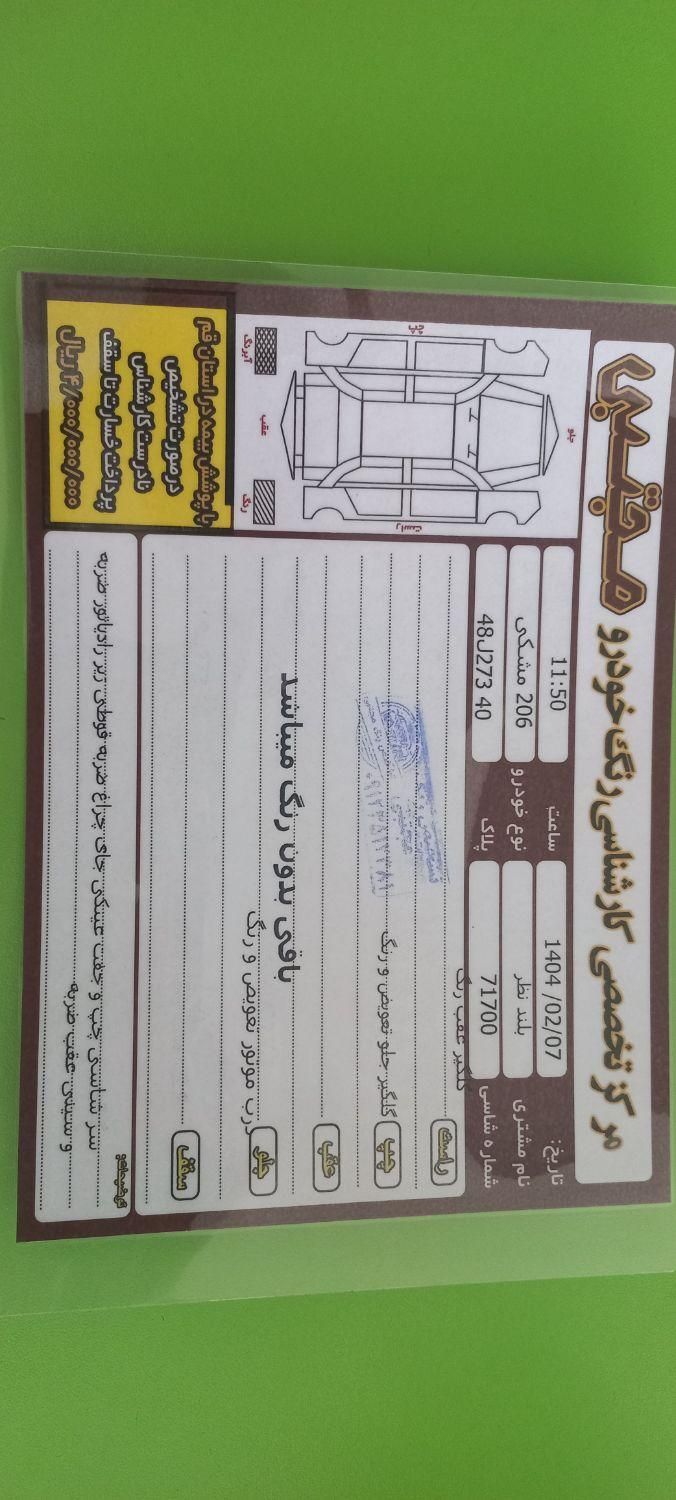 مرکز تخصصی کارشناسی رنگ خودرو مجتبی
تاریخ: 1404 /02/07
ساعت 11:50
نام مشتری بلند نظر
نوع خودرو 206 مشکی
شماره شاسی 71700
پلاک 48ل273 40
جلو
چپ
راست
عقب
آبرنگ
رنگ
با پوشش بیمه در استان قم
در صورت تشخیص
نادرست کارشناس
پرداخت خسارت تا سقف
راست گلگیر عقب رنگ
چپ گلگیر جلو تعویض و رنگ
عقب
باقی بدون رنگ میباشد
جلو درب موتور تعویض و رنگ
سقف
توضیحات:
سر شاسی چپ و جفت عینکی جای چراغ ضربه قوطی زیر رادیاتور ضربه
و سینی عقب ضربه